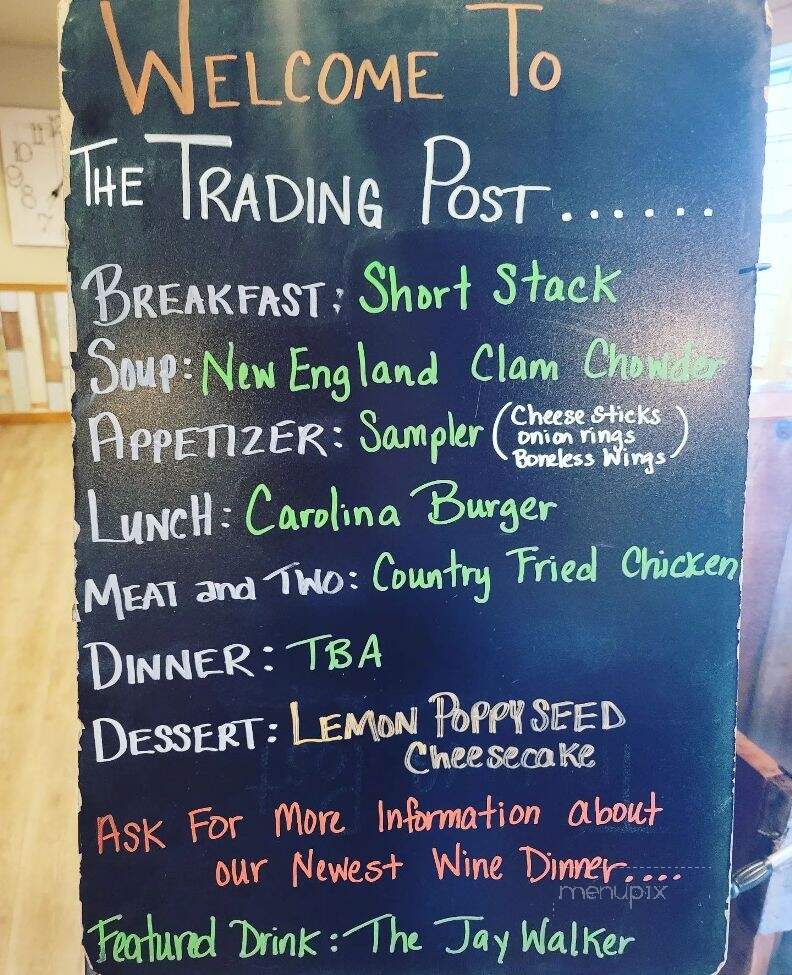 WELCOME TO
THE TRADING POST.......
BREAKFAST: Short Stack
Soup: New England Clam Chowder
APPETIZER: Sampler (Cheese Sticks
onion rings
Boneless Wings)
LUNCH: Carolina Burger
MEAT and TWO: Country Fried Chicken
DINNER: TBA
DESSERT: LEMON POPPYSEED
Cheesecake
ASK For More Information about
our Newest Wine Dinner....
menupix
Featured Drink: The Jay Walker
11
10
9
8
7